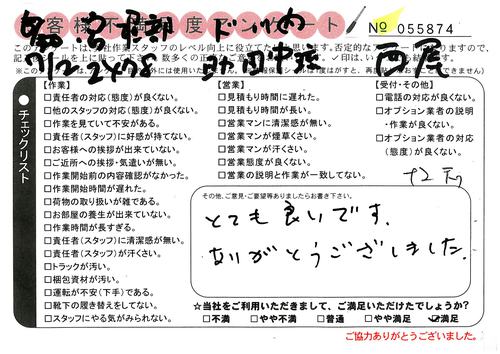 お客様不満足度アンケート
№ 055874
チェックリスト
【作業】
□責任者の対応(態度)が良くない。
□他のスタッフの対応(態度)が良くない。
□作業を見ていて不安がある。
□責任者(スタッフ)に好感が持てない。
□お客様への挨拶が出来ていない。
□ご近所への挨拶・気遣いが無い。
□作業開始前の内容確認がなかった。
□作業開始時間が遅れた。
□荷物の取り扱いが雑である。
□お部屋の養生が出来ていない。
□作業時間が長すぎる。
□責任者(スタッフ)に清潔感が無い。
□責任者(スタッフ)が汗さい。
□トラックが汚い。
□梱包資材が汚い。
□運転が不安(下手)である。
□靴下の履き替えをしてない。
□スタッフにやる気がみられない。
【営業】
□見積もり時間に遅れた。
□見積もり時間に長い。
□営業マンに清潔感が無い。
□営業マンが煙草くさい。
□営業マンが汗くさい。
□営業態度が良くない。
□営業の説明と作業が一致してない。
【受付・その他】
□電話の対応が良くない。
□オプション業者の説明
・作業が良くない。
□オプション業者の対応
(態度)が良くない。
その他、ご意見・ご要望等ありましたらお書き下さい。
とても良いです。
ありがとうございました。
☆当社をご利用いただきまして、ご満足いただけたでしょうか?
□不満 □やや不満 □普通 □やや満足 ☑満足
ご協力ありがとうございました。